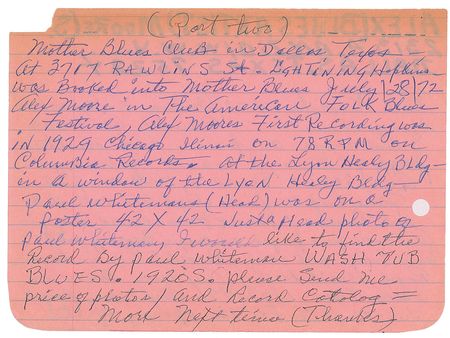 (Part two)
Mother Blues Club in Dallas, Texas—
At 3717 RAWLINS St. LIGHTINING Hopkins—
was Booked into Mother Blues July/28/72
Alex Moore in The American Folk Blues
Festival, Alex Moores First Recording was
in 1929 Chicago Ilinois on 78 RPM on
Columbia Records. at the Lyon Healy Bldg—
in a window of the Lyon Healy Bldg—
Paul Whitemans (Head) was on a
Poster 42 X 42 Just a Head photo of
Paul Whiteman, I would like to find the
Record By Paul Whiteman WASH TUB
BLUES. 1920s. please Send me
price of photos/ and Record Catolog =
More Next time (Thanks)